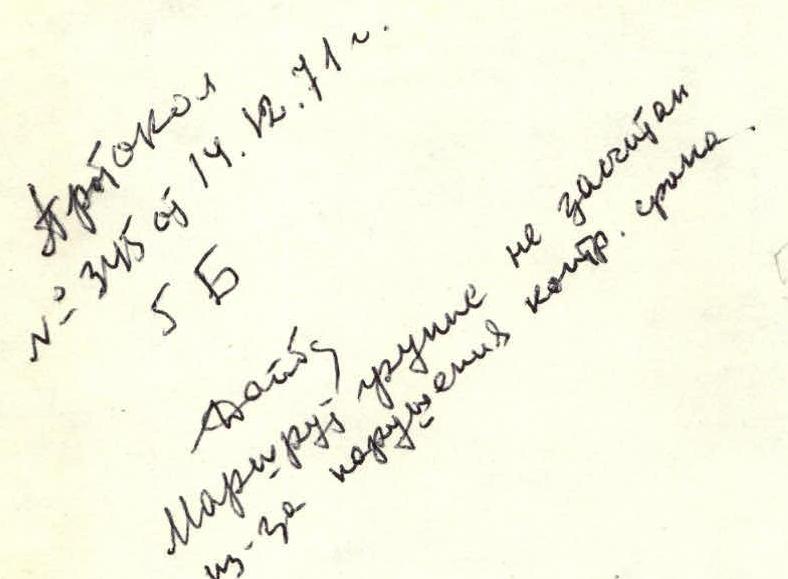 Протокол
№ 345 от 14.12.71 г.
5 Б
Маршрут группе не засчитан
из-за нарушения контр. срока.